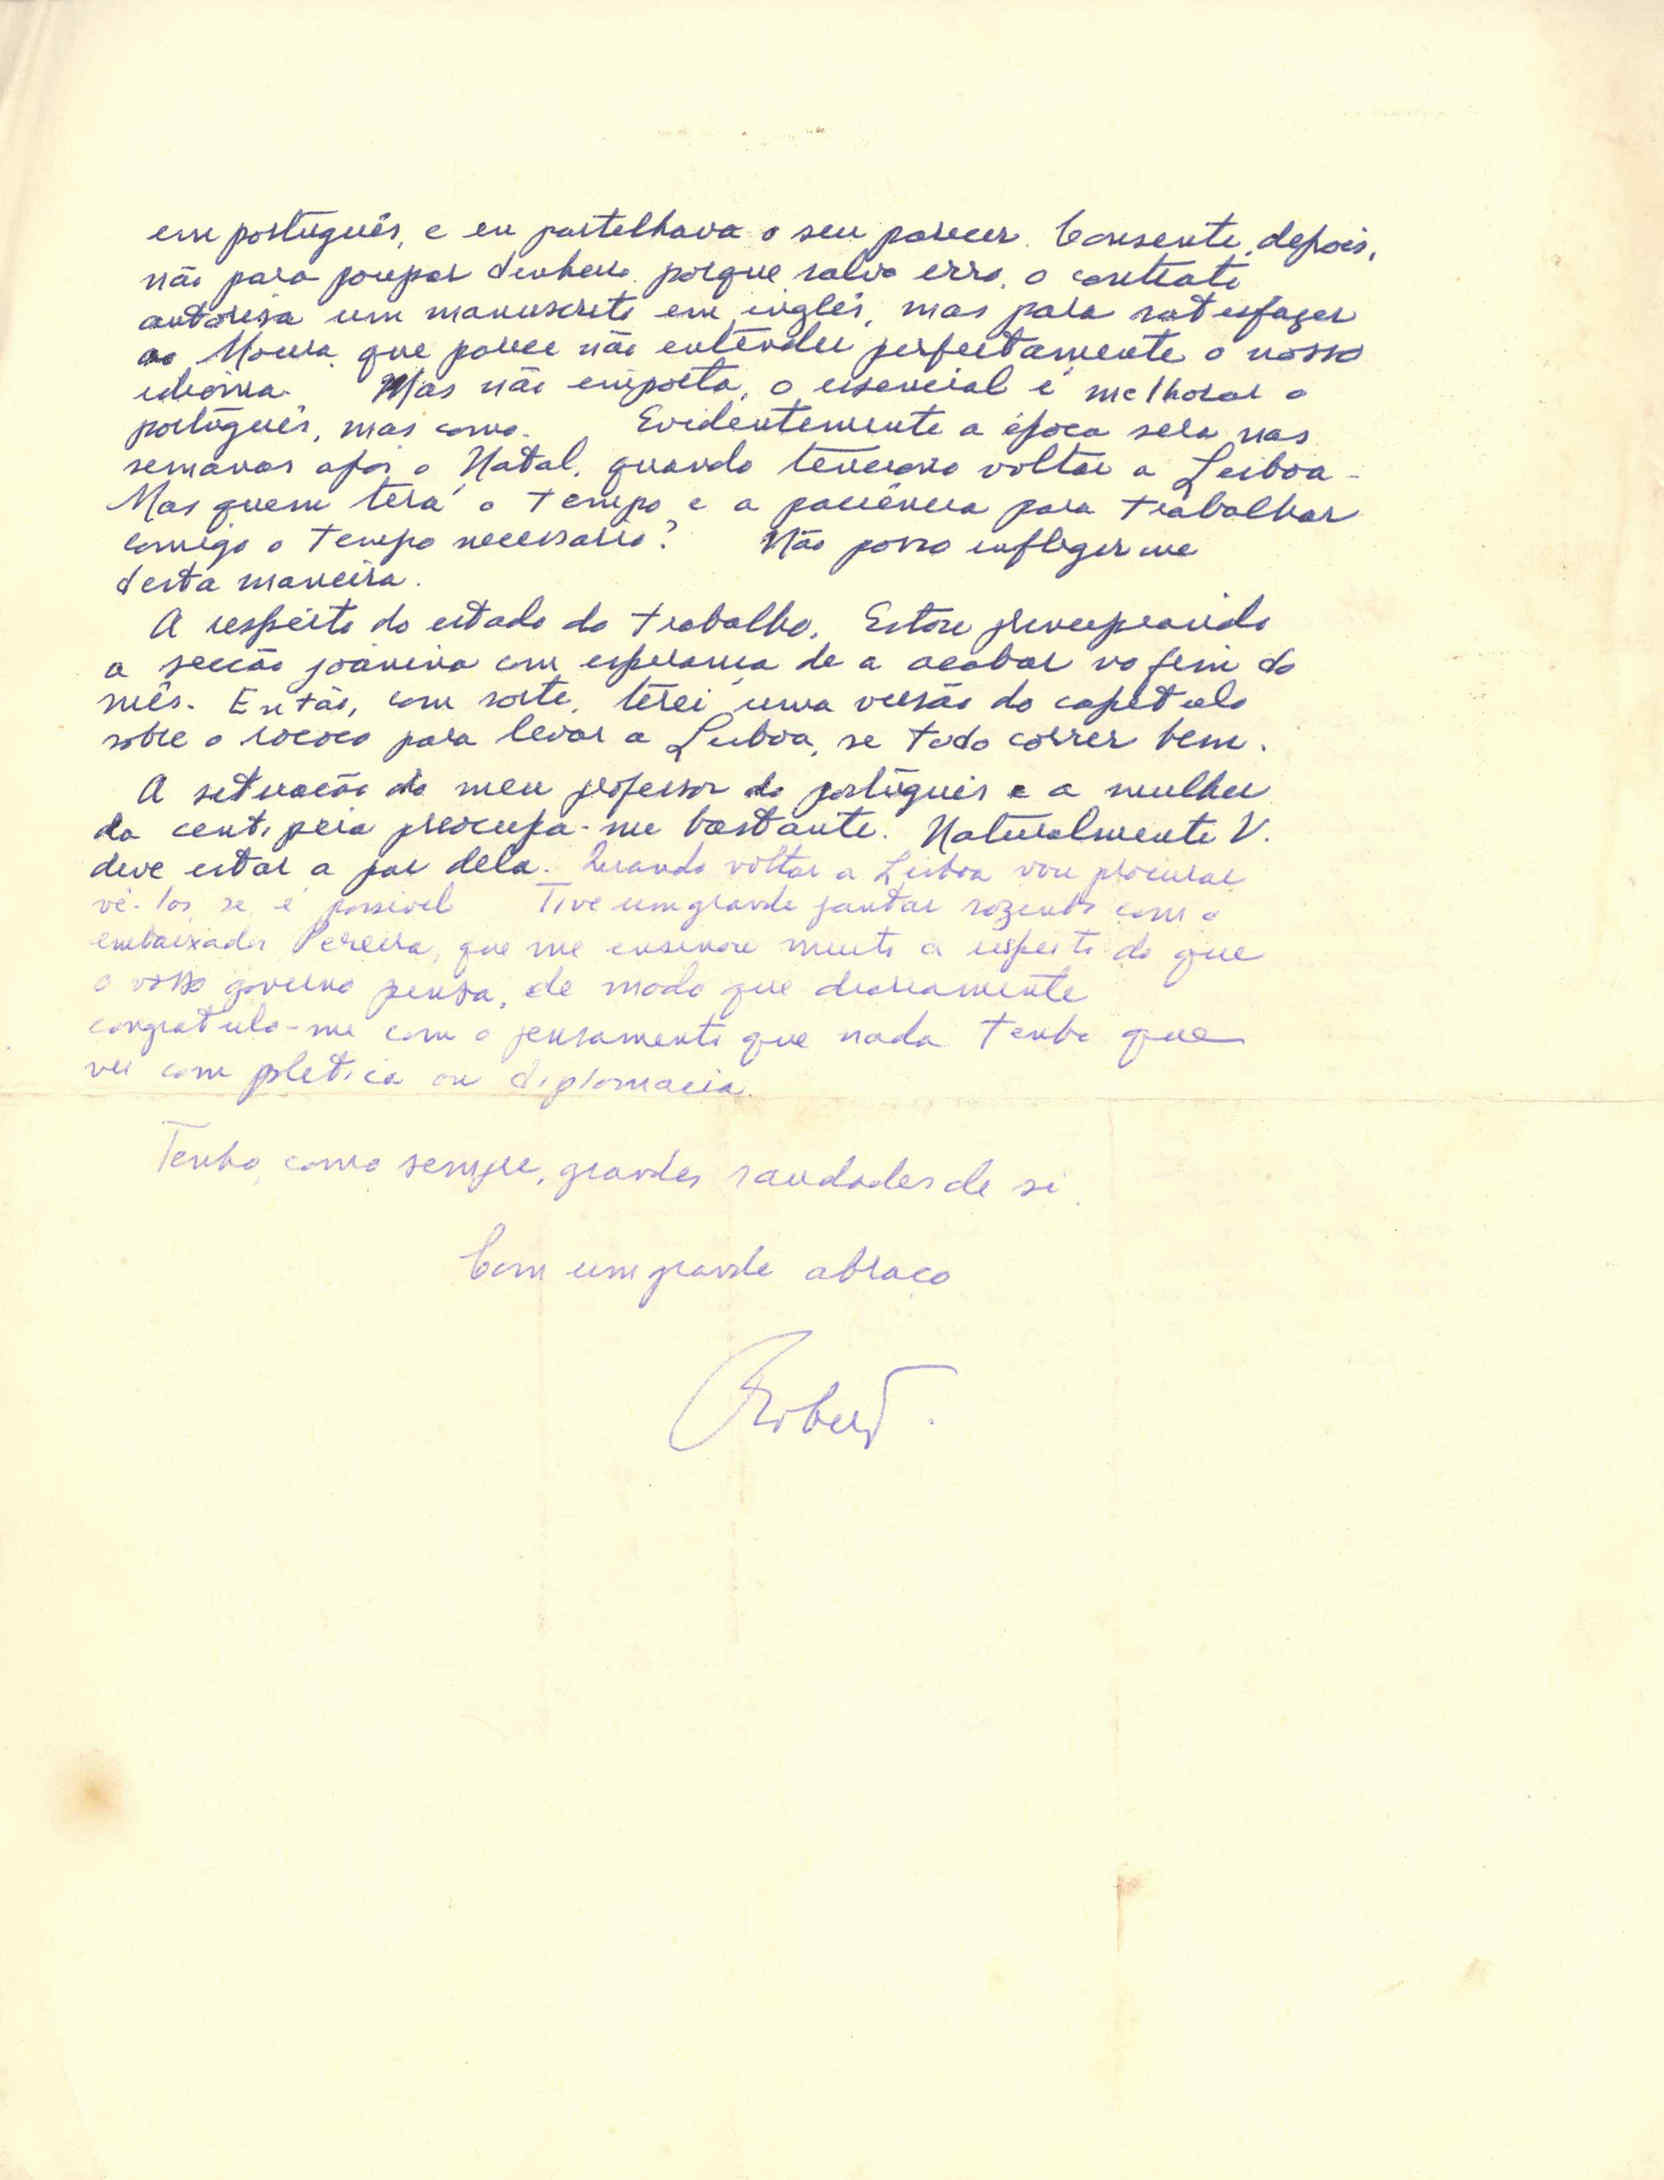 em português, e eu partelhava o seu parecer. Consente, depois,
não para poupar denheiro porque salvo erro, o contrato
autorisa um manuscrito em inglês, mas para satesfazer
ao Moura que parece não entender perfeitamente o nosso
idioma. Mas não emporta, o essencial é melhorar o
português, mas como. Evidentemente a época sera nas
semanas após o Natal, quando tenciono voltar a Lisboa.
Mas quem terá o tempo e a paciência para trabalhar
comigo o tempo necessario? Não posso enfleger me
desta maneira.
A respeito do estado do trabalho. Estou
a secção joanina com esperança de a acabar no fim do
mês. Então, com sorte, terei uma versão do capetulo
sobre o rococo para levar a Lisboa, se todo correr bem.
A setuação do meu professor do português e a mulher
da preocupa-me bastante. Naturalmente V.
deve estar a par dela. Quando voltar a Lisboa vou procurar
vê-los, se é possivel Tive um grande jantar sozenho com o
embaixador Pereira, que me ensenou muito a respeito do que
o vosso governo pensa, de modo que deareamente
congratulo-me com o pensamento que nada tenho que
ver com pletica ou diplomacia.
Tenho, como sempre, grandes saudades de si.
Com um grande abraço
Robert.